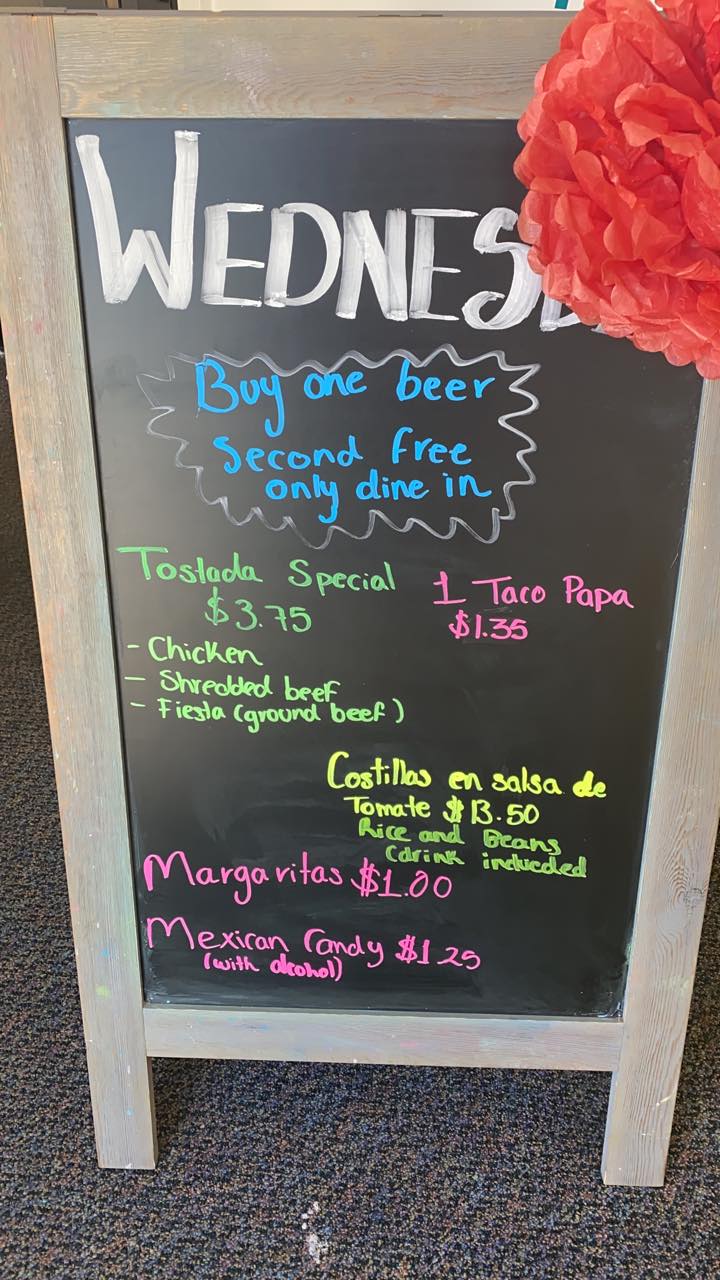 WEDNESD
Buy one beer
second free
only dine in
Tostada Special
$3.75
- Chicken
- Shredded beef
- Fiesta (ground beef)
1 Taco Papa
$1.35
Costillas en salsa de
Tomate $13.50
Rice and Beans
(drink inclueded
Margaritas $1.00
Mexican Candy $1.25
(with alcohol)